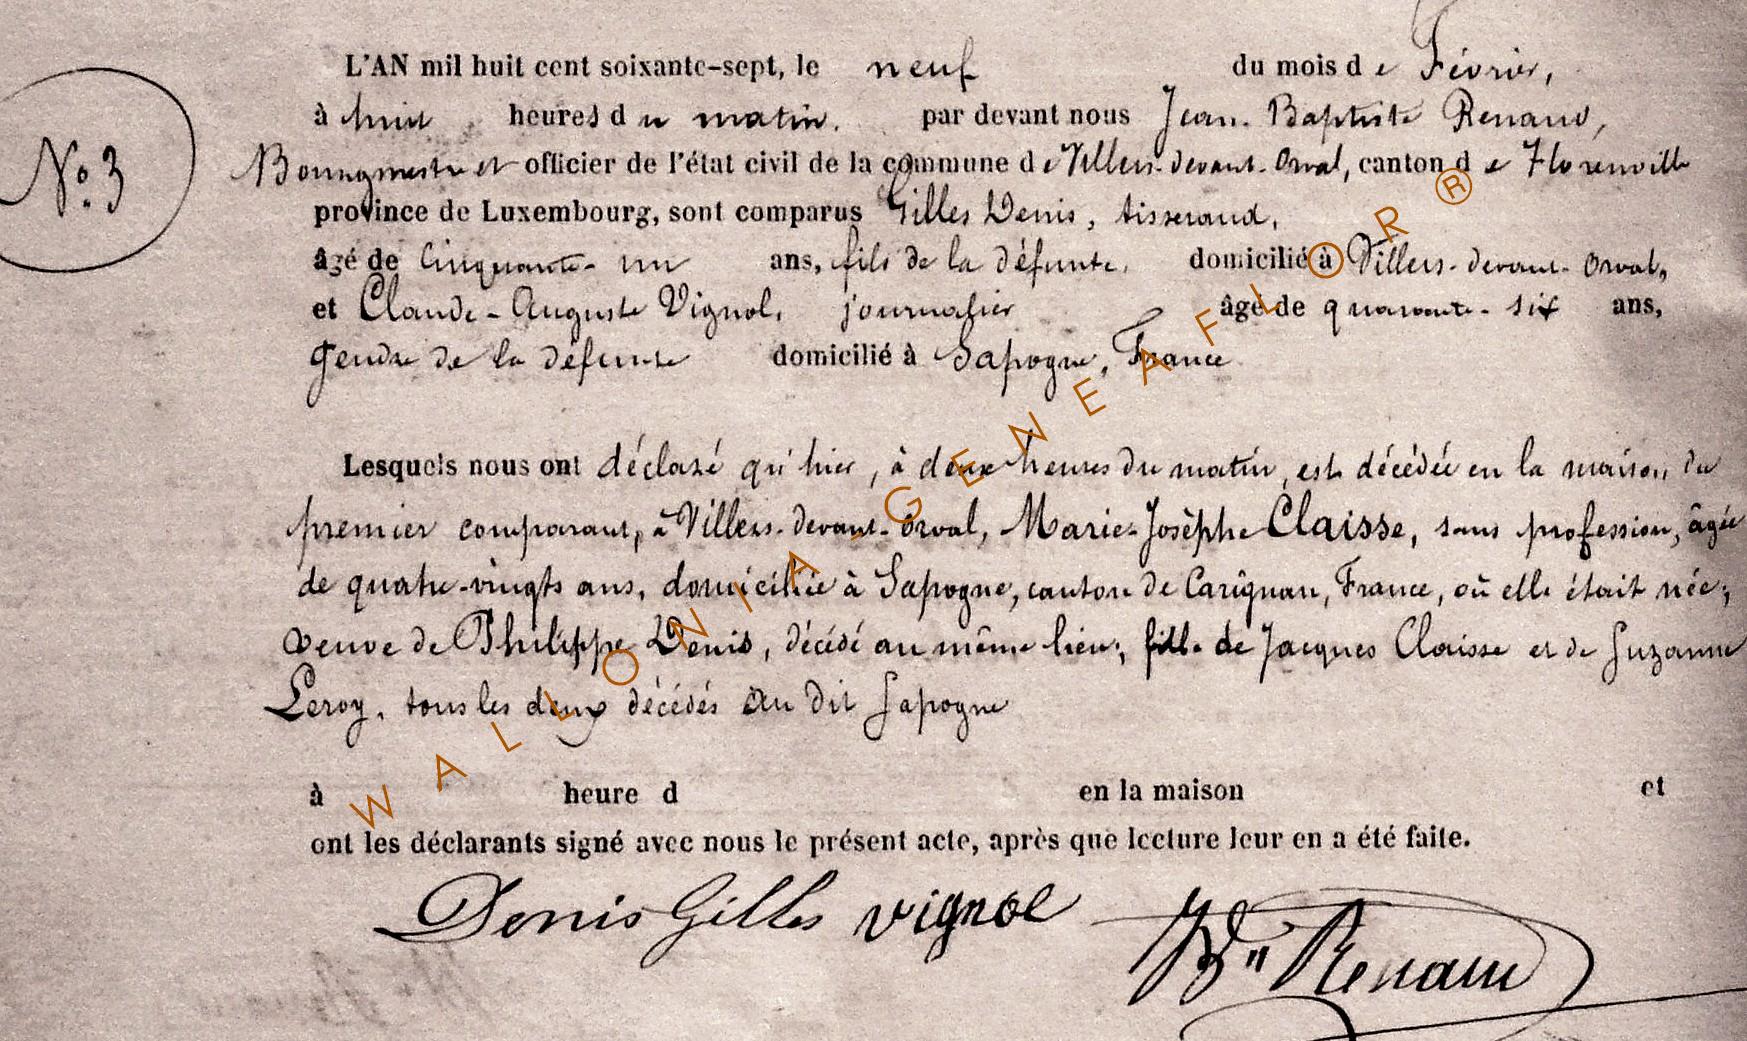 L'AN mil huit cent soixante-sept, le neuf du mois de Février,
à huit heures du matin. par devant nous Jean-Baptiste Renaud,
N° 3
Bourgmestre et officier de l'état civil de la commune de Villers-devant-Orval, canton de Florenville
province de Luxembourg, sont comparus Gilles Denis, tisserand,
âgé de cinquante-un ans, fils de la défunte, domicilié à Villers-devant-Orval,
et Claude-Auguste Vignol, journalier âgé de quarante-six ans,
gendre de la défunte domicilié à Sapogne, France
Lesquels nous ont déclaré qu'hier, à deux heures du matin, est décédée en la maison du
premier comparant, à Villers-devant-Orval, Marie-Josèphe Claisse, sans profession, âgée
de quatre-vingts ans, domiciliée à Sapogne, canton de Carignan, France, où elle était née;
veuve de Philippe Denis, décédé au même lieu; fille de Jacques Claisse et de Suzanne
Leroy, tous les deux décédés au dit Sapogne
à heure d en la maison et
ont les déclarants signé avec nous le présent acte, après que lecture leur en a été faite.
Denis Gilles vignol Renaud
WALLONIA-GENEAFLOR®